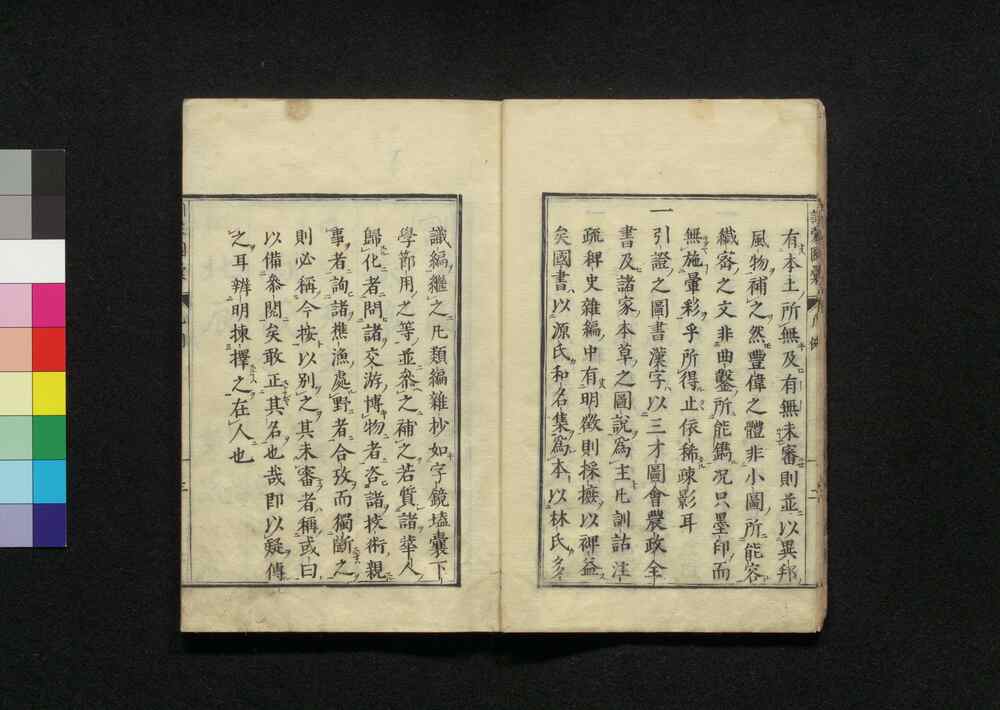 有本土所無及有無未審則並以異邦
風物補之然豊偉之體非小圖所能容
纎密之文非曲鑿所能鐫况只墨印而
無施暈彩乎所得止依稀疎影耳
一引證之圖書漢字以三才圖會農政全
書及諸家本草之圖說爲主凡訓詁注
疏稗史雜編中有明徴則採摭以裨益
矣國書以源氏和名集爲本以林氏多
識編繼之凡類編雜抄如字鏡壒囊下
學節用之等並叅之補之若質諸華人
歸化者問諸交游博物者咨諸技術親
事者詢諸樵漁處野者合攷而獨斷之
則必稱今按以別之其未審者稱或曰
以備叅閱矣敢正其名也哉即以疑傳
之耳辨明揀擇之在人也